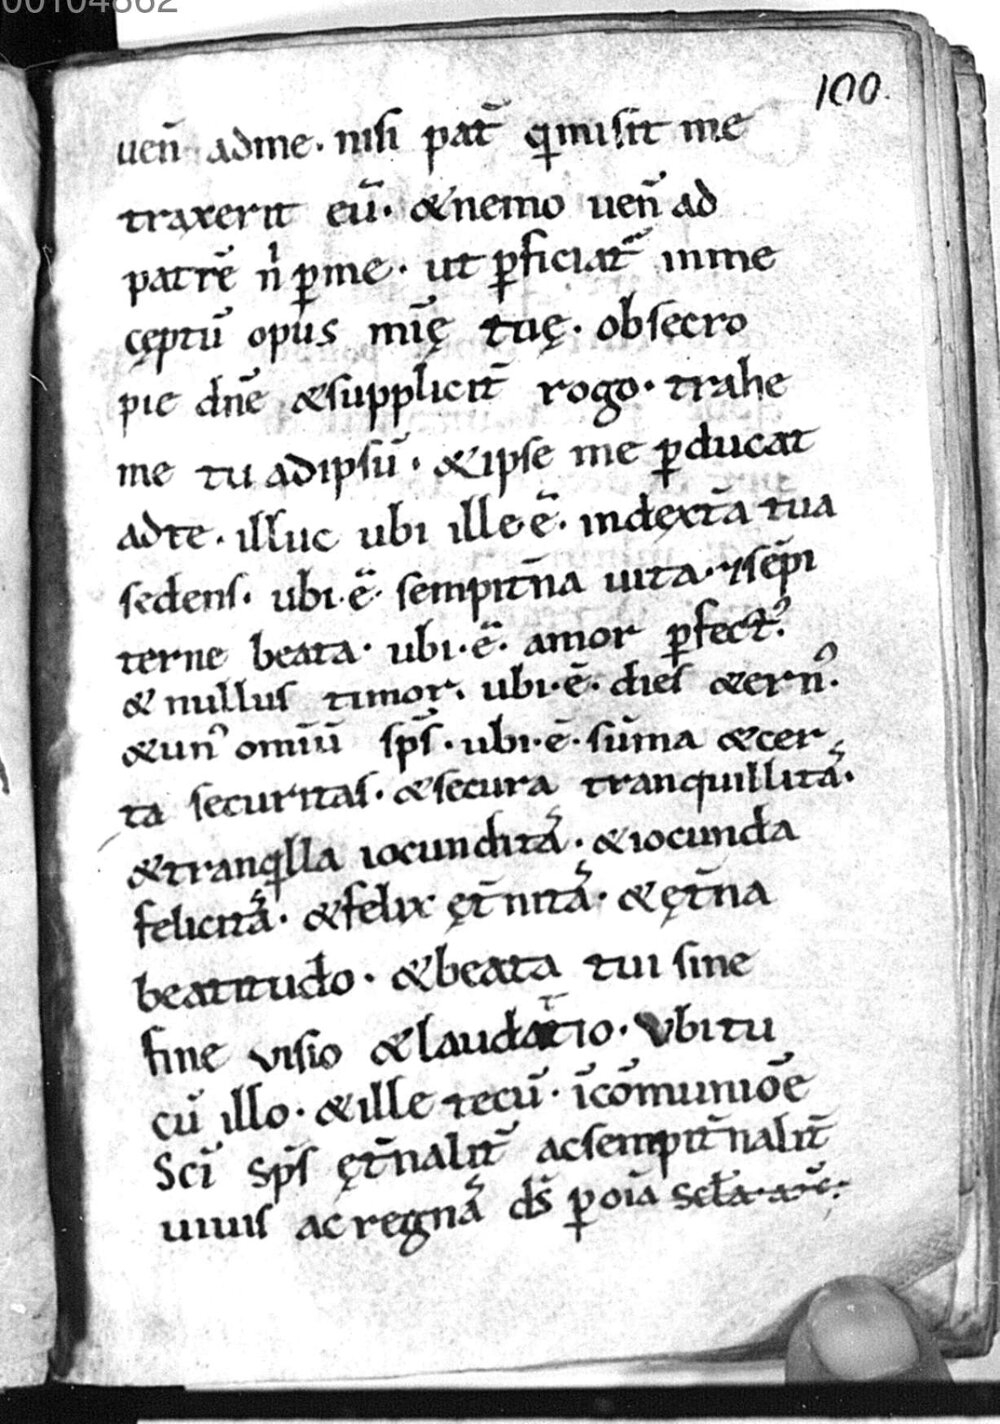 00104862
100.
uen̄ adme· nisi pat̄ qimisit me
traxerit eū· &nemo uen̄ ad
patrē n̄ ꝑme· ut ꝑficiat᷑ inme
cęptū opus mīę tuę· obsecro
pie dnē &supplicit̄ rogo· trahe
me tu adipsū· &ipse me ꝑducat
adte· illuc ubi ille·ē· indext̄a tua
sedens· ubi·ē· sempit̄na uita·⁊sēpi
terne beata· ubi·ē· amor ꝑfect᾽·
& nullus timor· ubi·ē· dies &ern᾽·
&un᾽ omīū sp̄s· ubi·ē· sūma &cer
ta securitas· &secura tranquillitā·
&tranqilla iocunditā· &iocunda
felicitā· &felix ęt̄nitā· & ęt̄na
beatitudo· &beata tui sine
fine visio &laudatio· Vbi tu
cū illo· &ille tecū· īcōmuniōe
Scī Sp̄s ęt̄nalit̄ acsempit̄nalit̄
uiuis ac regnā ds̄ ꝑ oīa